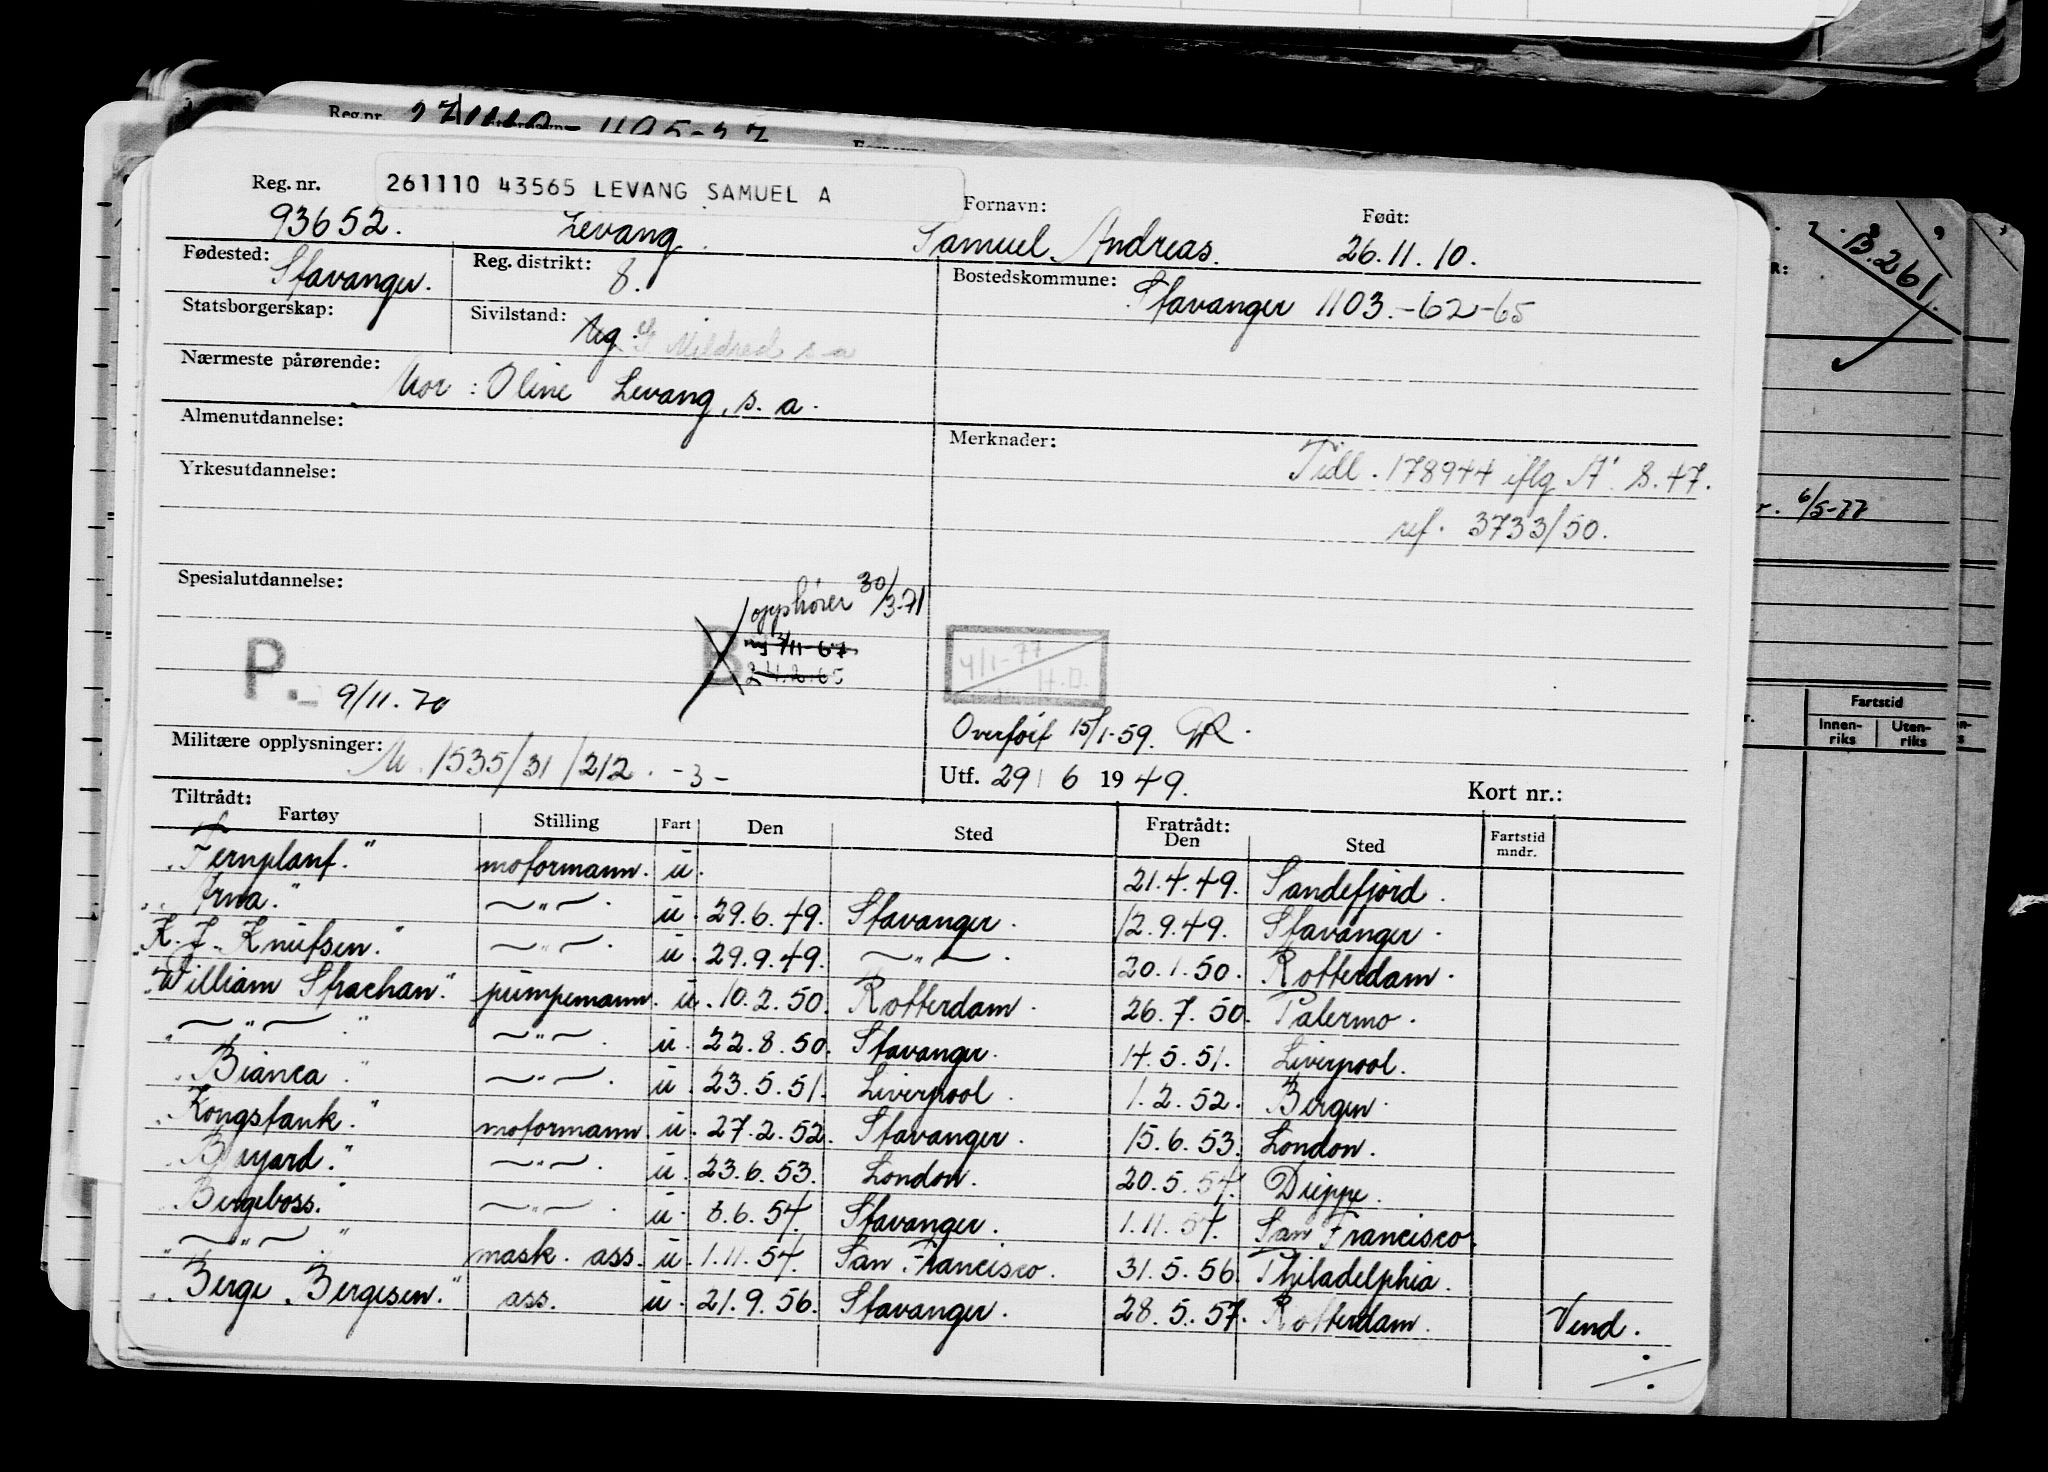 Reg. nr. 261110 43565 LEVANG SAMUEL A Fornavn: Født:
93652. Levang. Samuel Andreas. 26.11.10.
Fødested: Stavanger. Reg. distrikt: 8. Bostedskommune: Stavanger 1103.-62-65
Statsborgerskap: Sivilstand: Ug. G Mildred s a
Nærmeste pårørende: Mor : Oline Levang, s. a.
Almenutdannelse: Merknader: Tidl. 178944 iflg A' 8.47.
Yrkesutdannelse: ref. 3733/50.
Spesialutdannelse: opphører 30/3-71
B ny 3/11-67
24.2.65
P. 9/11.70
4/1-77 H.D.
Overført 15/1-59.
Militære opplysninger: M. 1535/31/212. -3- Utf. 29/6 1949. Kort nr.:
Tiltrådt: Fratrådt:
Fartøy Stilling Fart Den Sted Den Sted Fartstid mndr.
"Fernplant." motormann. u. 21.4.49. Sandefjord.
"Irna." —"—. u. 29.6.49. Stavanger. 12.9.49. Stavanger.
"K. J. Knutsen." —"—. u. 29.9.49. —"—. 20.1.50. Rotterdam.
"William Strachan." pumpemann. u. 10.2.50. Rotterdam. 26.7.50. Palermo.
"—"—." —"—. u. 22.8.50. Stavanger. 14.5.51. Liverpool.
"Bianca." —"—. u. 23.5.51. Liverpool. 1.2.52. Bergen.
"Kongstank." motormann. u. 27.2.52. Stavanger. 15.6.53. London.
"Bayard." —"—. u. 23.6.53. London. 20.5.54. Dieppe.
"Bergeboss." —"—. u. 8.6.54. Stavanger. 1.11.54. San Francisco.
"—"—" mask. ass. u. 1.11.54. San Francisco. 31.5.56. Philadelphia.
"Berge Bergesen." ass. u. 21.9.56. Stavanger. 28.5.57. Rotterdam. Vend.
Reg.nr.
B.261.
6/5-77
Fartstid
Innen-riks Uten-riks